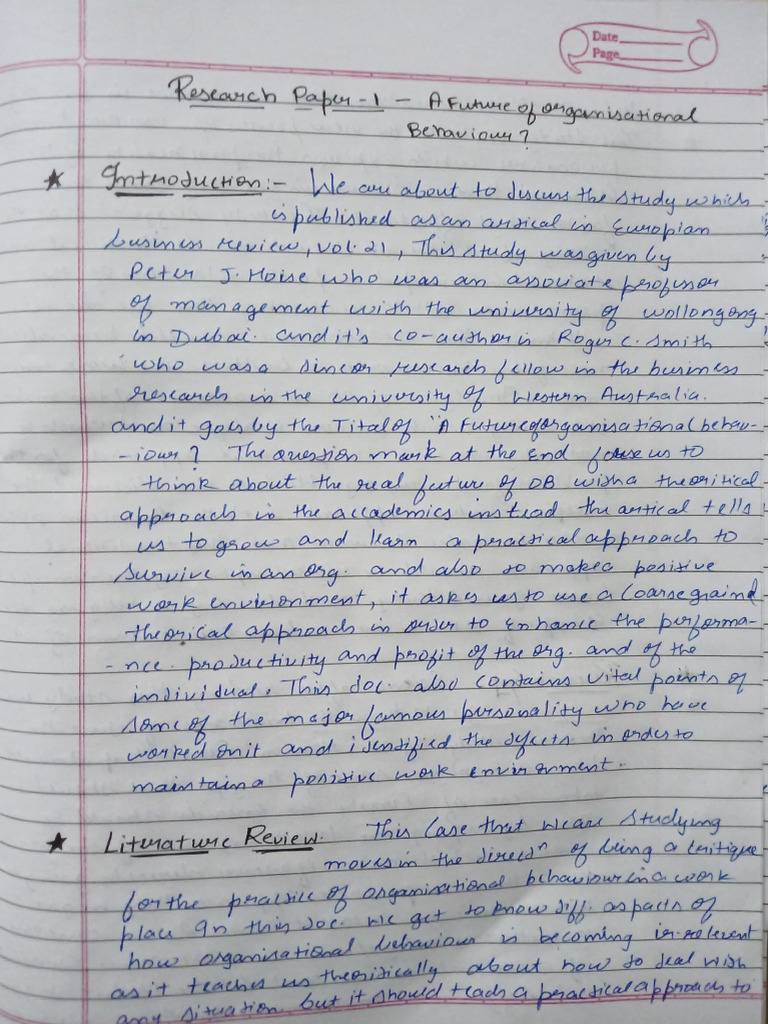 Date
Page
Research Paper-1 - A Future of organisational
Behaviour?
★ Introduction:- We are about to discuss the study which
is published as an artical in Europian
business review, vol. 21, This study was given by
Peter J. Hoise who was an associate professor
of management with the university of wollongong
in Dubai. and it's co-author is Roger C. Smith
who was a sincor research fellow in the business
research in the university of Western Australia.
and it goes by the Tital of "A Future of organisational behav-
-iour? The question mark at the end focuse us to
think about the real future of OB with a theoritical
approach in the accademics instead the artical tells
us to grow and learn a practical approach to
survive in an org. and also to make a positive
work environment, it askes us to use a Coarse graind
theorical approach in order to enhance the performa-
-nce. productivity and profit of the org. and of the
individual. This doc. also contains vital points of
some of the major famous personality who have
worked on it and identified the defects in order to
maintain a positive work environment.
★ Literature Review. This Case that we are studying
moves in the direcⁿ of being a critique
for the practice of organisational behaviour in a work
place In this doc. we get to know diff. aspacts of
how organisational behaviour is becoming ir-relevent
as it teaches us theoritically about how to deal with
any situation but it should teach a practical approach to